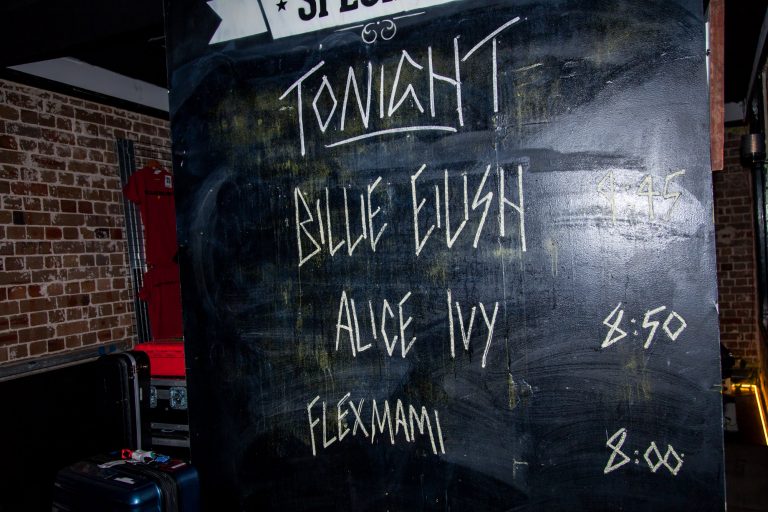 TONIGHT
BILLIE EILISH 9:45
ALICE IVY 8:50
FLEXMAMI 8:00